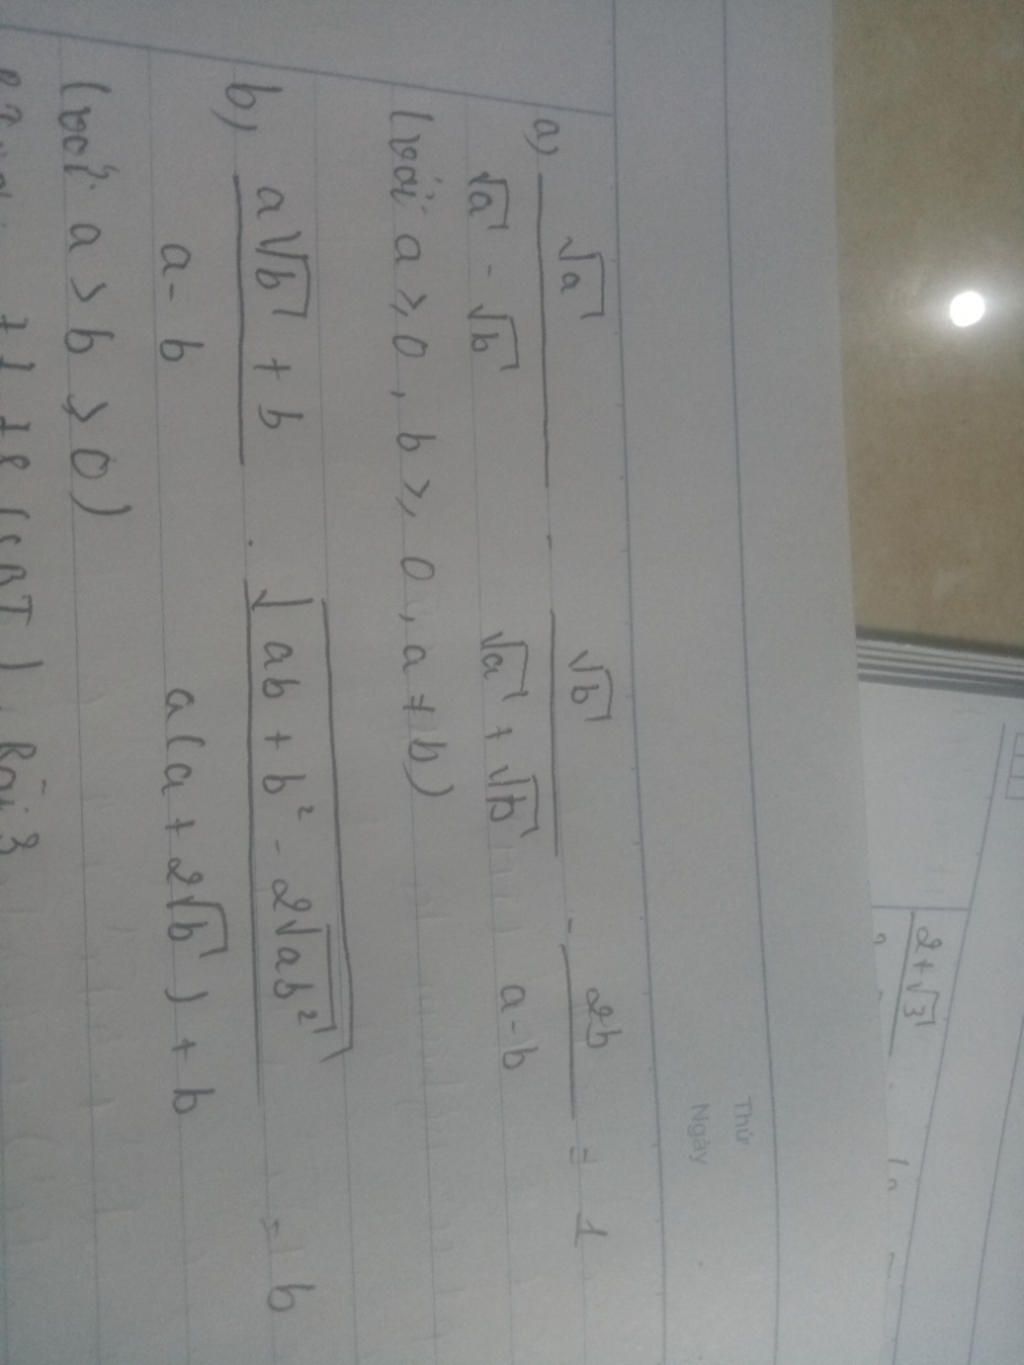 Thứ
Ngày
a) √a / (√a - √b) - √b / (√a + √b) - 2b / (a-b) = 1
(với a ⩾ 0, b ⩾ 0, a ≠ b)
b) (a√b + b) / (a-b) . √(ab + b² - 2√(ab²)) / (a(a + 2√b) + b) = b
(với a > b > 0)
(SBT), Bài 3
2+√3